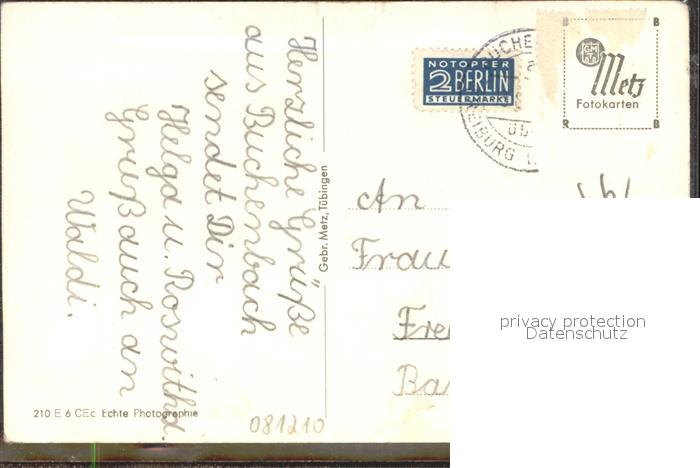 Herzliche Grüße
aus Buchenbach
sendet Dir
Helga u. Roswitha.
Gruß auch an
Waldi.
Gebr. Metz, Tübingen
210 E 6 CEc Echte Photographie
081210
NOTOPFER
2 BERLIN
STEUERMARKE
B B
Metz
Fotokarten
R B
An
Frau
privacy protection
Datenschutz